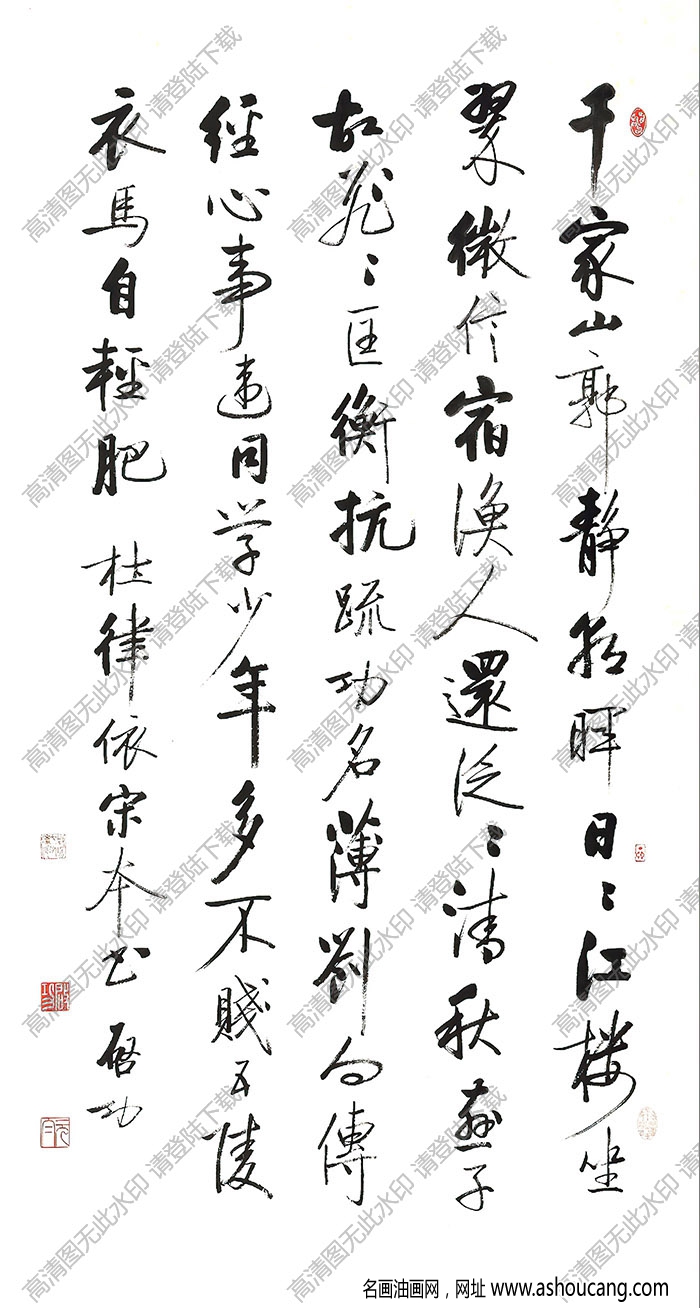 千家山郭靜朝暉日〻江楼坐
翠微信宿漁人還泛〻清秋燕子
故飛〻匡衡抗疏功名薄劉向傳
經心事違同学少年多不賤五陵
衣馬自輕肥 杜律依宋本书 启功
高清图无此水印 请登陆下载
名画油画网，网址 www.ashoucang.com